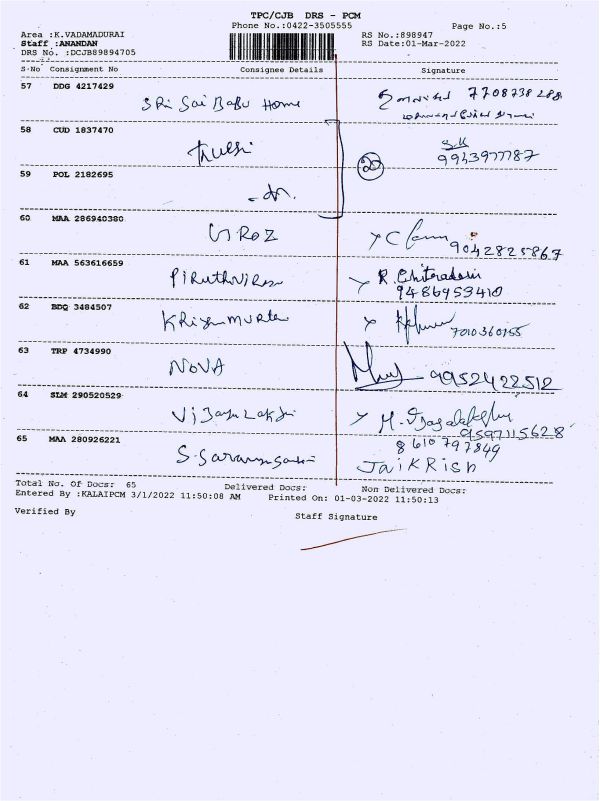 TPC/CJB DRS - PCM
Phone No.:0422-3505555 Page No.:5
Area :K.VADAMADURAI RS No.:898947
Staff :ANANDAN RS Date:01-Mar-2022
DRS No. :DCJB89894705
S-No Consignment No Consignee Details Signature
57 DDG 4217429 SRi Sai Babu Home 7708738288
58 CUD 1837470 Tulsi S.K
9943977787
20
59 POL 2182695
60 MAA 286940380 UROZ
9042825867
61 MAA 563616659 R. Chitradevi
9486953410
62 BDQ 3484507
7010360155
63 TRP 4734990 NOVA 9952422512
64 SLM 290520529
9597115628
65 MAA 280926221 8610797849
JAIKRISH
Total No. Of Docs: 65 Delivered Docs: Non Delivered Docs:
Entered By :KALAIPCM 3/1/2022 11:50:08 AM Printed On: 01-03-2022 11:50:13
Verified By Staff Signature